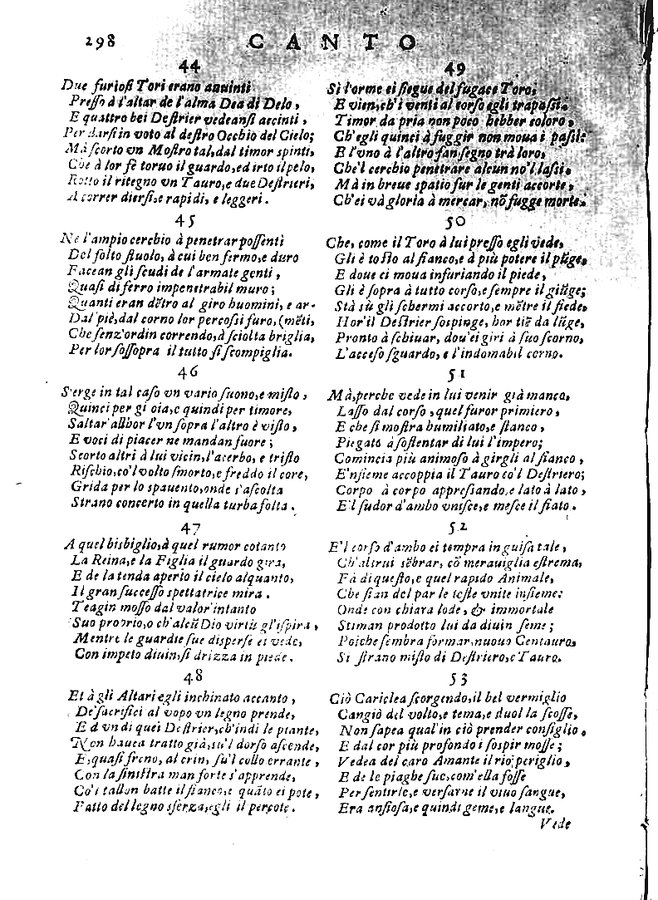 298 CANTO
44
Due furiosi Tori erano auuinti
Presso à l'altar de l'alma Dea di Delo,
E quattro bei Destrier vedeansi accinti,
Per darsi in voto al destro Occhio del Cielo;
Mà scorto vn Mostro tal, dal timor spinti,
Che à lor fè toruo il guardo, ed irto il pelo,
Rotto il ritegno vn Tauro, e due Destrieri,
A correr diersi, e rapidi, e leggeri.
45
Ne l'ampio cerchio à penetrar possenti
Del folto stuolo, à cui ben fermo, e duro
Facean gli scudi de l'armate genti,
Quasi di ferro impenetrabil muro;
Quanti eran dẽtro al giro huomini, e ar-
Dal piè, dal corno lor percossi furo, (mẽti,
Che senz'ordin correndo, à sciolta briglia,
Per lor sossopra il tutto si scompiglia.
46
Serge in tal caso vn vario suono, e misto,
Quinci per gioia, e quindi per timore,
Saltar' allhor l'vn sopra l'altro è visto,
E voci di piacer ne mandan fuore;
Scorto altri à lui vicin, l'acerbo, e tristo
Rischio, co'l volto smorto, e freddo il core,
Grida per lo spauento, onde s'ascolta
Strano concerto in quella turba folta.
47
A quel bisbiglio, à quel rumor cotanto
La Reina, e la Figlia il guardo gira,
E de la tenda aperto il cielo alquanto,
Il gran successo spettatrice mira.
Teagin mosso dal valor'intanto
Suo proprio, o ch'alcũ Dio virtù gl'ispira,
Mentre le guardie sue disperse ei vede,
Con impeto diuin, si drizza in piede.
48
Et à gli Altari egli inchinato accanto,
De' sacrifici al vopo vn legno prende,
E d'vn di quei Destrier, ch'indi le piante,
Non hauea tratto già, su'l dorso ascende,
E, quasi freno, al crin, su'l collo errante,
Con la sinistra man forte s'apprende,
Co'i tallon batte il fianco, e quãto ei pote,
Fatto del legno sferza, egli il percote.
49
Sì l'orme ei siegue del fugace Toro,
E vien, ch'i venti al corso egli trapassi.
Timor da pria non poco hebber coloro,
Ch'egli quinci à fuggir non moua i passi:
E l'vno à l'altro fan segno trà loro,
Che'l cerchio penetrare alcun no'l lassi,
Mà in breue spatio fur le genti accorte,
Ch'ei và gloria à mercar, nõ fugge morte.
50
Che, come il Toro à lui presso egli vede,
Gli è tosto al fianco, e à più potere il pũge,
E doue ei moua infuriando il piede,
Gli è sopra à tutto corso, e sempre il giũge;
Stà sù gli schermi accorto, e mẽtre il fiede,
Hor'il Destrier sospinge, hor tiẽ da lũge,
Pronto à schiuar, dou'ei giri à suo scorno,
L'acceso sguardo, e l'indomabil corno.
51
Mà, perche vede in lui venir già manco,
Lasso dal corso, quel furor primiero,
E che si mostra humiliato, e stanco,
Piegato à sostentar di lui l'impero;
Comincia più animoso à girgli al fianco,
E'nsieme accoppia il Tauro co'l Destriero;
Corpo à corpo appressando, e lato à lato,
E'l sudor d'ambo vnisce, e mesce il fiato.
52
E'l corso d'ambo ei tempra in guisa tale,
Ch'altrui sẽbrar, cõ merauiglia estrema,
Fà di questo, e quel rapido Animale,
Che sian del par le teste vnite insieme:
Onde con chiara lode, & immortale
Stiman prodotto lui da diuin seme;
Poiche sembra formar, nuouo Centauro,
Si strano misto di Destriero, e Tauro.
53
Ciò Cariclea scorgendo, il bel vermiglio
Cangiò del volto, e tema, e duol la scosse,
Non sapea qual'in ciò prender consiglio,
E dal cor più profondo i sospir mosse;
Vedea del caro Amante il rio periglio,
E de le piaghe sue, com'ella fosse
Per sentirle, e versarne il viuo sangue,
Era ansiosa, e quindi geme, e langue.
Vede